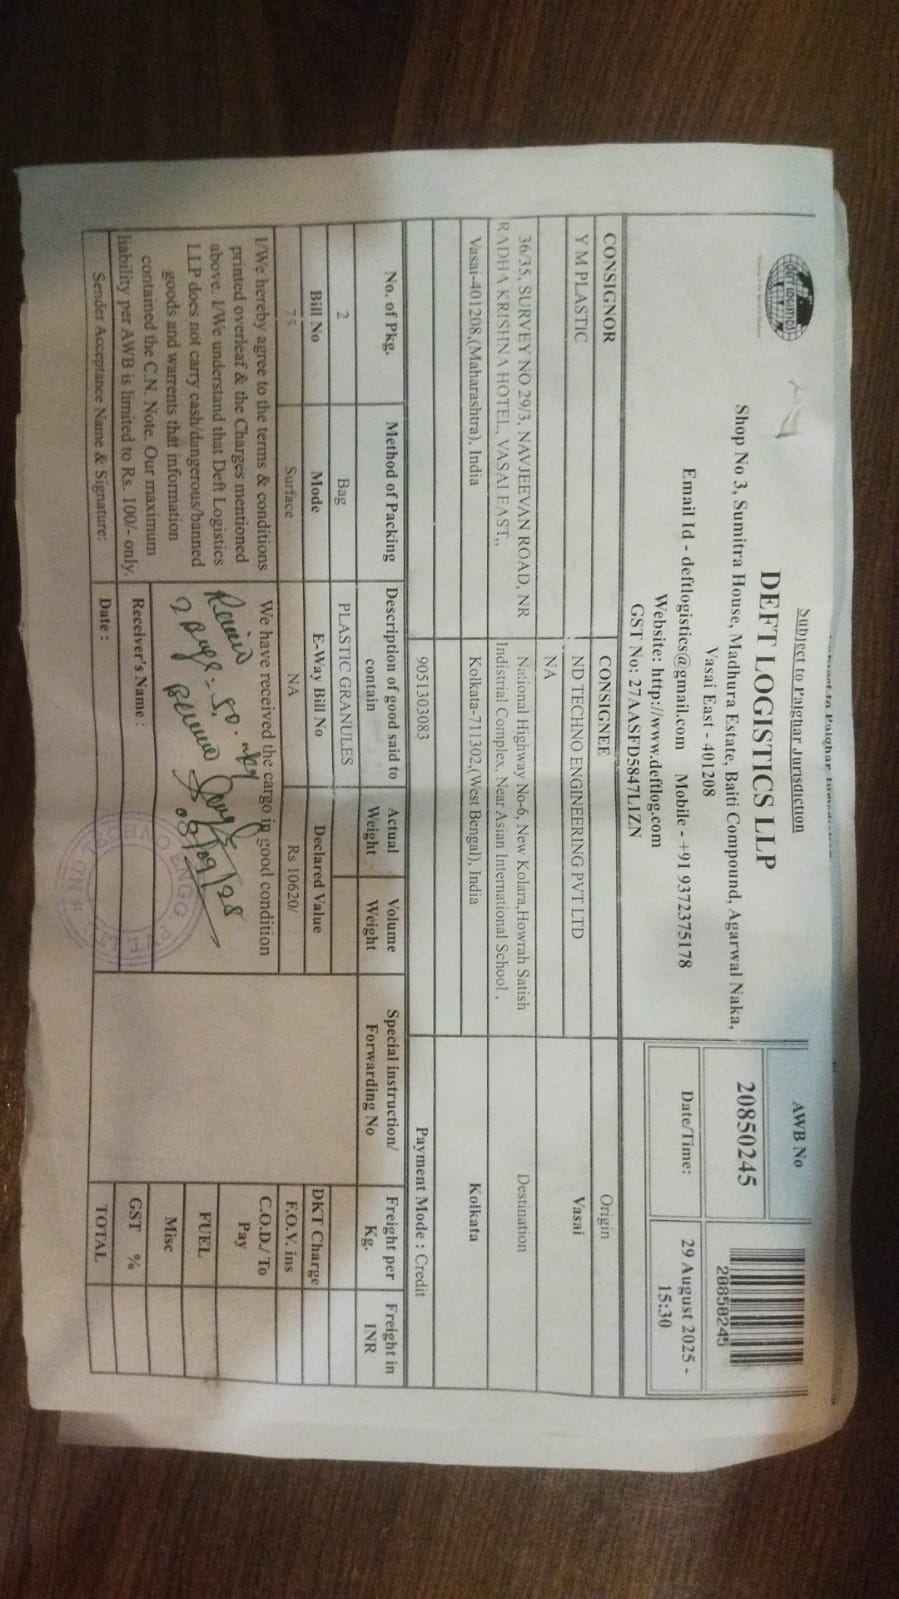 Subject to Palghar Jurisdiction
DEFT LOGISTICS LLP
Shop No 3, Sumitra House, Madhura Estate, Baiti Compound, Agarwal Naka,
Vasai East - 401208
Email Id - deftlogistics@gmail.com Mobile - +91 9372375178
Website: http://www.deftlog.com
GST No: 27AASFD5847L1ZN
AWB No
20850245
20850245
Date/Time:
29 August 2025 -
15:30
CONSIGNOR
CONSIGNEE
Origin
Y M PLASTIC
ND TECHNO ENGINEERING PVT LTD
Vasai
NA
36/35, SURVEY NO 29/3, NAVJEEVAN ROAD, NR
RADHA KRISHNA HOTEL, VASAI EAST,,
National Highway No-6, New Kolara,Howrah Satish
Indistrial Complex, Near Asian International School ,
Destination
Vasai-401208,(Maharashtra), India
Kolkata-711302,(West Bengal), India
Kolkata
9051303083
Payment Mode : Credit
No. of Pkg.
Method of Packing
Description of good said to
contain
Actual
Weight
Volume
Weight
Special instruction/
Forwarding No
Freight per
Kg.
Freight in
INR
2
Bag
PLASTIC GRANULES
Bill No
Mode
E-Way Bill No
Declared Value
DKT Charge
75
Surface
NA
Rs 10620/
F.O.V. ins
I/We hereby agree to the terms & conditions
printed overleaf & the Charges mentioned
above. I/We understand that Deft Logistics
LLP does not carry cash/dangerous/banned
goods and warrents that information
contarned the C.N. Note. Our maximum
liability per AWB is limited to Rs. 100/- only.
We have received the cargo in good condition
C.O.D./ To
Pay
FUEL
Misc
Receiver's Name :
GST %
Sender Acceptance Name & Signature:
Date :
TOTAL